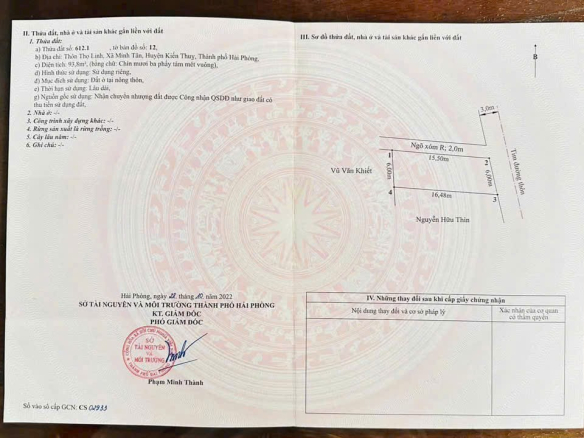 II. Thửa đất, nhà ở và tài sản khác gắn liền với đất
1. Thửa đất:
a) Thửa đất số: 612.1, tờ bản đồ số: 12,
b) Địa chỉ: Thôn Thọ Linh, Xã Minh Tân, Huyện Kiến Thuỵ, Thành phố Hải Phòng,
c) Diện tích: 93,8m², (bằng chữ: Chín mươi ba phẩy tám mét vuông),
d) Hình thức sử dụng: Sử dụng riêng,
đ) Mục đích sử dụng: Đất ở tại nông thôn,
e) Thời hạn sử dụng: Lâu dài,
g) Nguồn gốc sử dụng: Nhận chuyển nhượng đất được Công nhận QSDĐ như giao đất có
thu tiền sử dụng đất,
2. Nhà ở: -/-
3. Công trình xây dựng khác: -/-
4. Rừng sản xuất là rừng trồng: -/-
5. Cây lâu năm: -/-
6. Ghi chú: -/-
Hải Phòng, ngày 28 tháng 10 năm 2022
SỞ TÀI NGUYÊN VÀ MÔI TRƯỜNG THÀNH PHỐ HẢI PHÒNG
KT. GIÁM ĐỐC
PHÓ GIÁM ĐỐC
SỞ
TÀI NGUYÊN
VÀ
MÔI TRƯỜNG
Phạm Minh Thành
Số vào sổ cấp GCN: CS 02933
III. Sơ đồ thửa đất, nhà ở và tài sản khác gắn liền với đất
B
2,0m
Ngõ xóm R; 2,0m
1
15,50m
2
Vũ Văn Khiết
6,00m
6,00m
Tim đường thôn
4
16,48m
3
Nguyễn Hữu Thin
IV. Những thay đổi sau khi cấp giấy chứng nhận
Nội dung thay đổi và cơ sở pháp lý
Xác nhận của cơ quan
có thẩm quyền